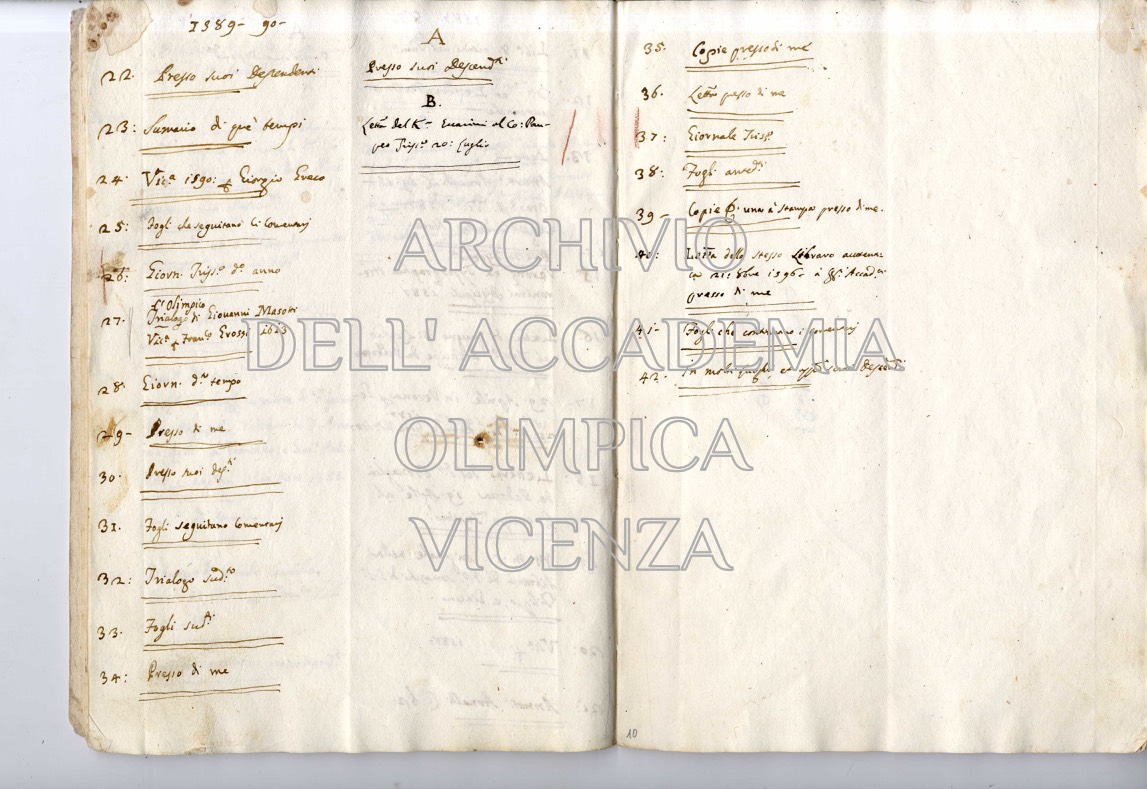 1589- 90-
22. Presso suoi Dependenti
23: Sumario di que' tempi
24. Vic.ª 1590: Giorgio Greco
25: Fogli che seguitano li Comentarj
26: Giorn. Triss.º d.º anno
27. L'Olimpico
Trialogo di Giovanni Masotti
Vic.ª Franc.º Grossi 1623
28. Giorn. d.º tempo
29- Presso di me
30. Presso suoi
31. Fogli seguitano Comentarj
32: Trialogo sud.to
33. Fogli sud.ti
34: Presso di me
A
Presso suoi Descend.ti
B.
Lett.ª del K.r al Co: Pom-
peo Triss.º 20: Luglio
35. Copie presso di me
36. Lett.ª presso di me
37: Giornale Triss.º
38: Fogli anted.ti
39- Copie una a stampa presso di me.
40: Lett.ª dello stesso
21: 8bre 1596. à Accad.ci
presso di me
41- Fogli che continuano i Comentarj
42. in molti
10
ARCHIVIO
DELL'ACCADEMIA
OLIMPICA
VICENZA